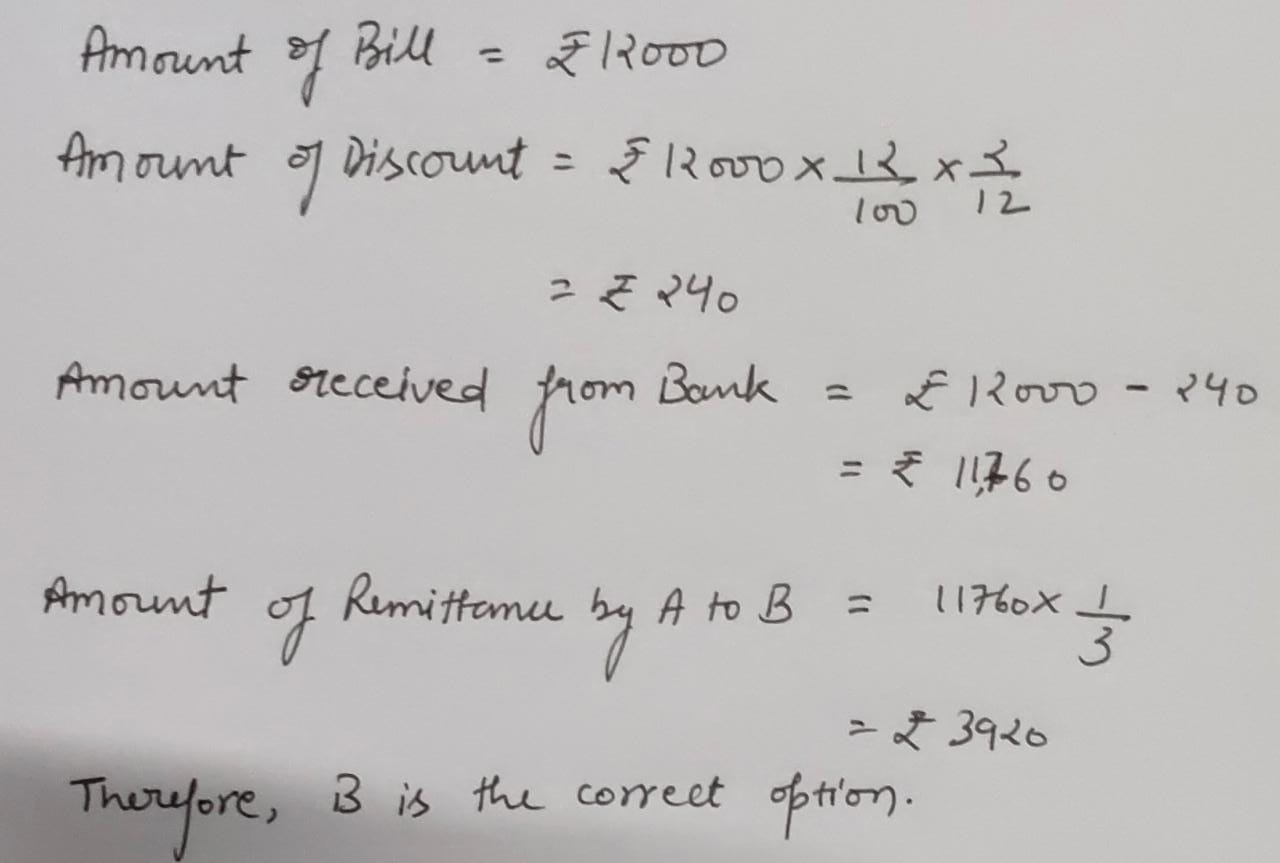 Amount of Bill = ₹12000
Amount of Discount = ₹12000 × 12/100 × 2/12
= ₹240
Amount received from Bank = ₹12000 - 240
= ₹11,760
Amount of Remittance by A to B = 11760 × 1/3
= ₹3920
Therefore, B is the correct option.